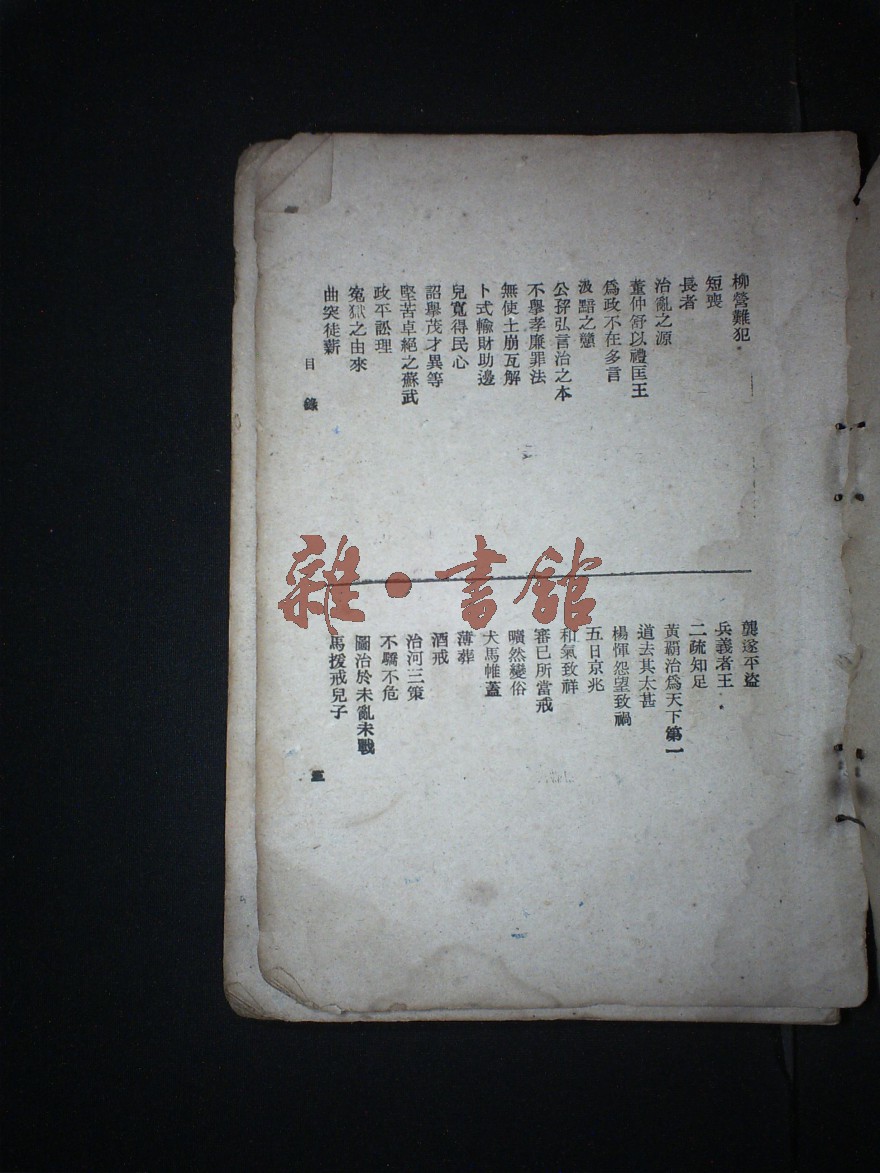 柳營難犯
短喪
長者
治亂之源
董仲舒以禮匡王
爲政不在多言
汲黯之戇
公孫弘言治之本
不舉孝廉罪法
無使土崩瓦解
卜式輸財助邊
兒寬得民心
詔舉茂才異等
堅苦卓絕之蘇武
政平訟理
冤獄之由來
曲突徒薪
龔遂平盜
兵義者王
二疏知足
黃霸治爲天下第一
道去其太甚
楊惲怨望致禍
五日京兆
和氣致祥
審已所當戒
曠然變俗
犬馬帷蓋
薄葬
酒戒
治河三策
不驕不危
圖治於未亂未戰
馬援戒兒子
目錄
三
雜·書館